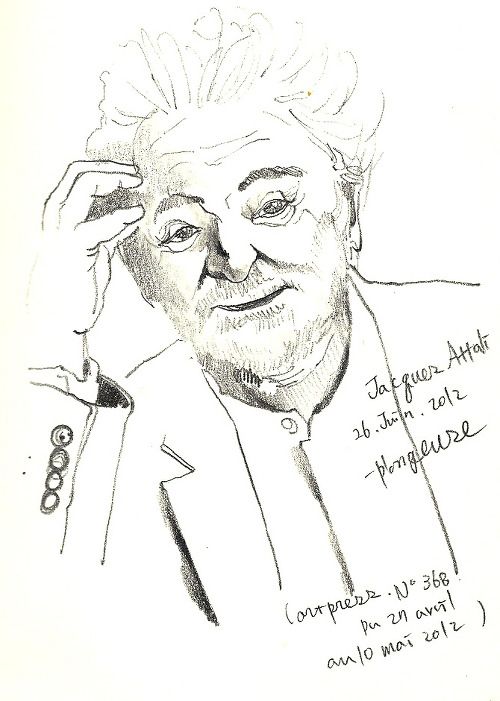 Jacques Attali
26. Juin. 2012
- plongeuse
(artpress. N° 368
Du 27 avril
au 10 mai 2012 )